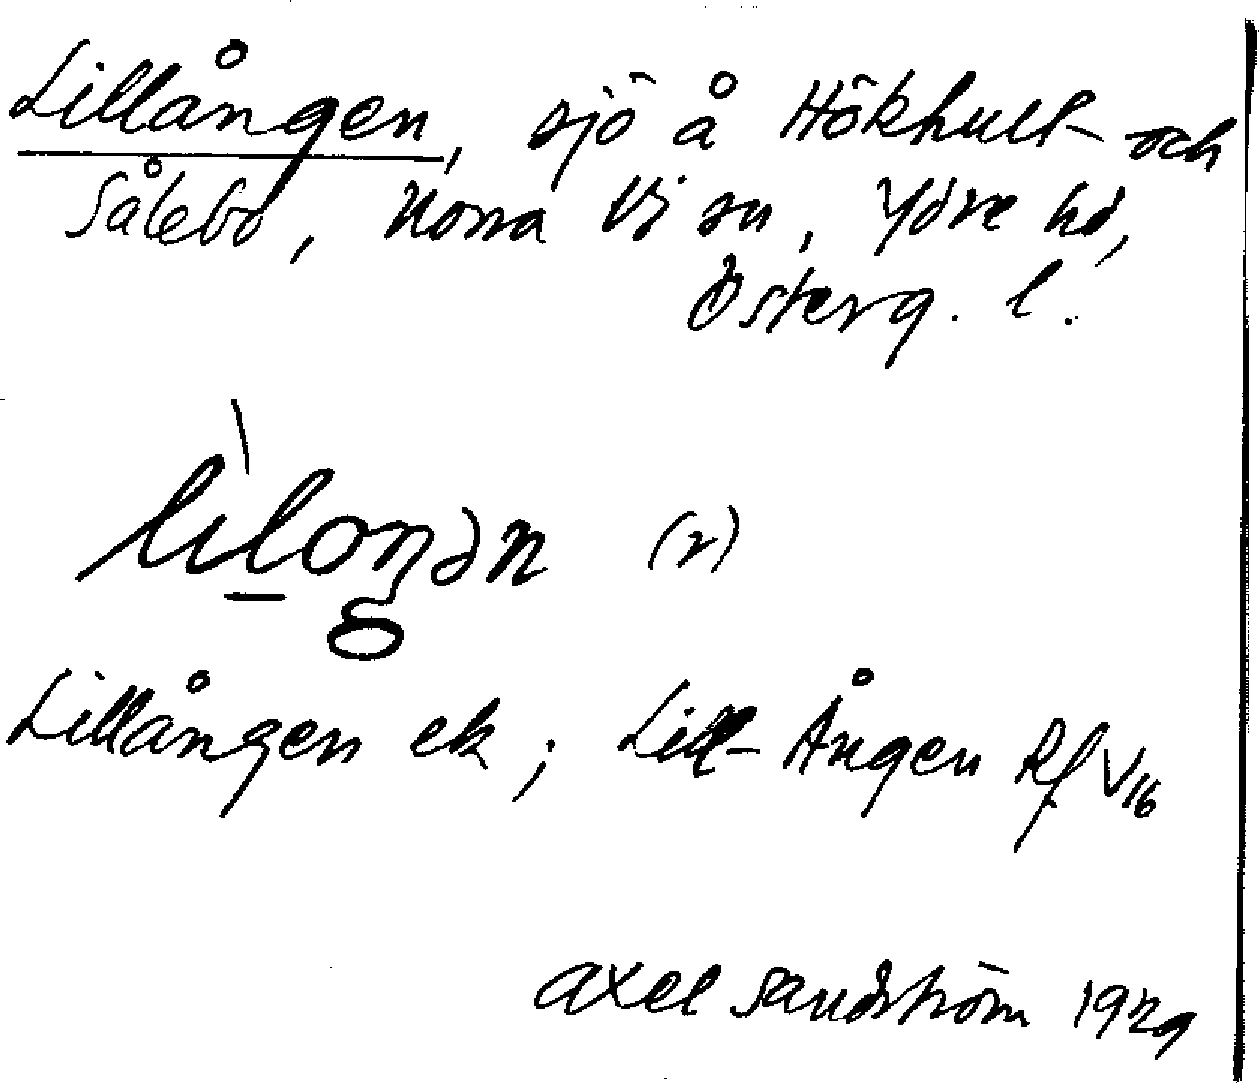 Lillången, sjö å Hökhult och
Sålebo, Norra Vi sn, Ydre hd,
Österg. l.
lìloŋən (r)
Lillången ek; Lill-Ången Rf V16
Axel Sandström 1929